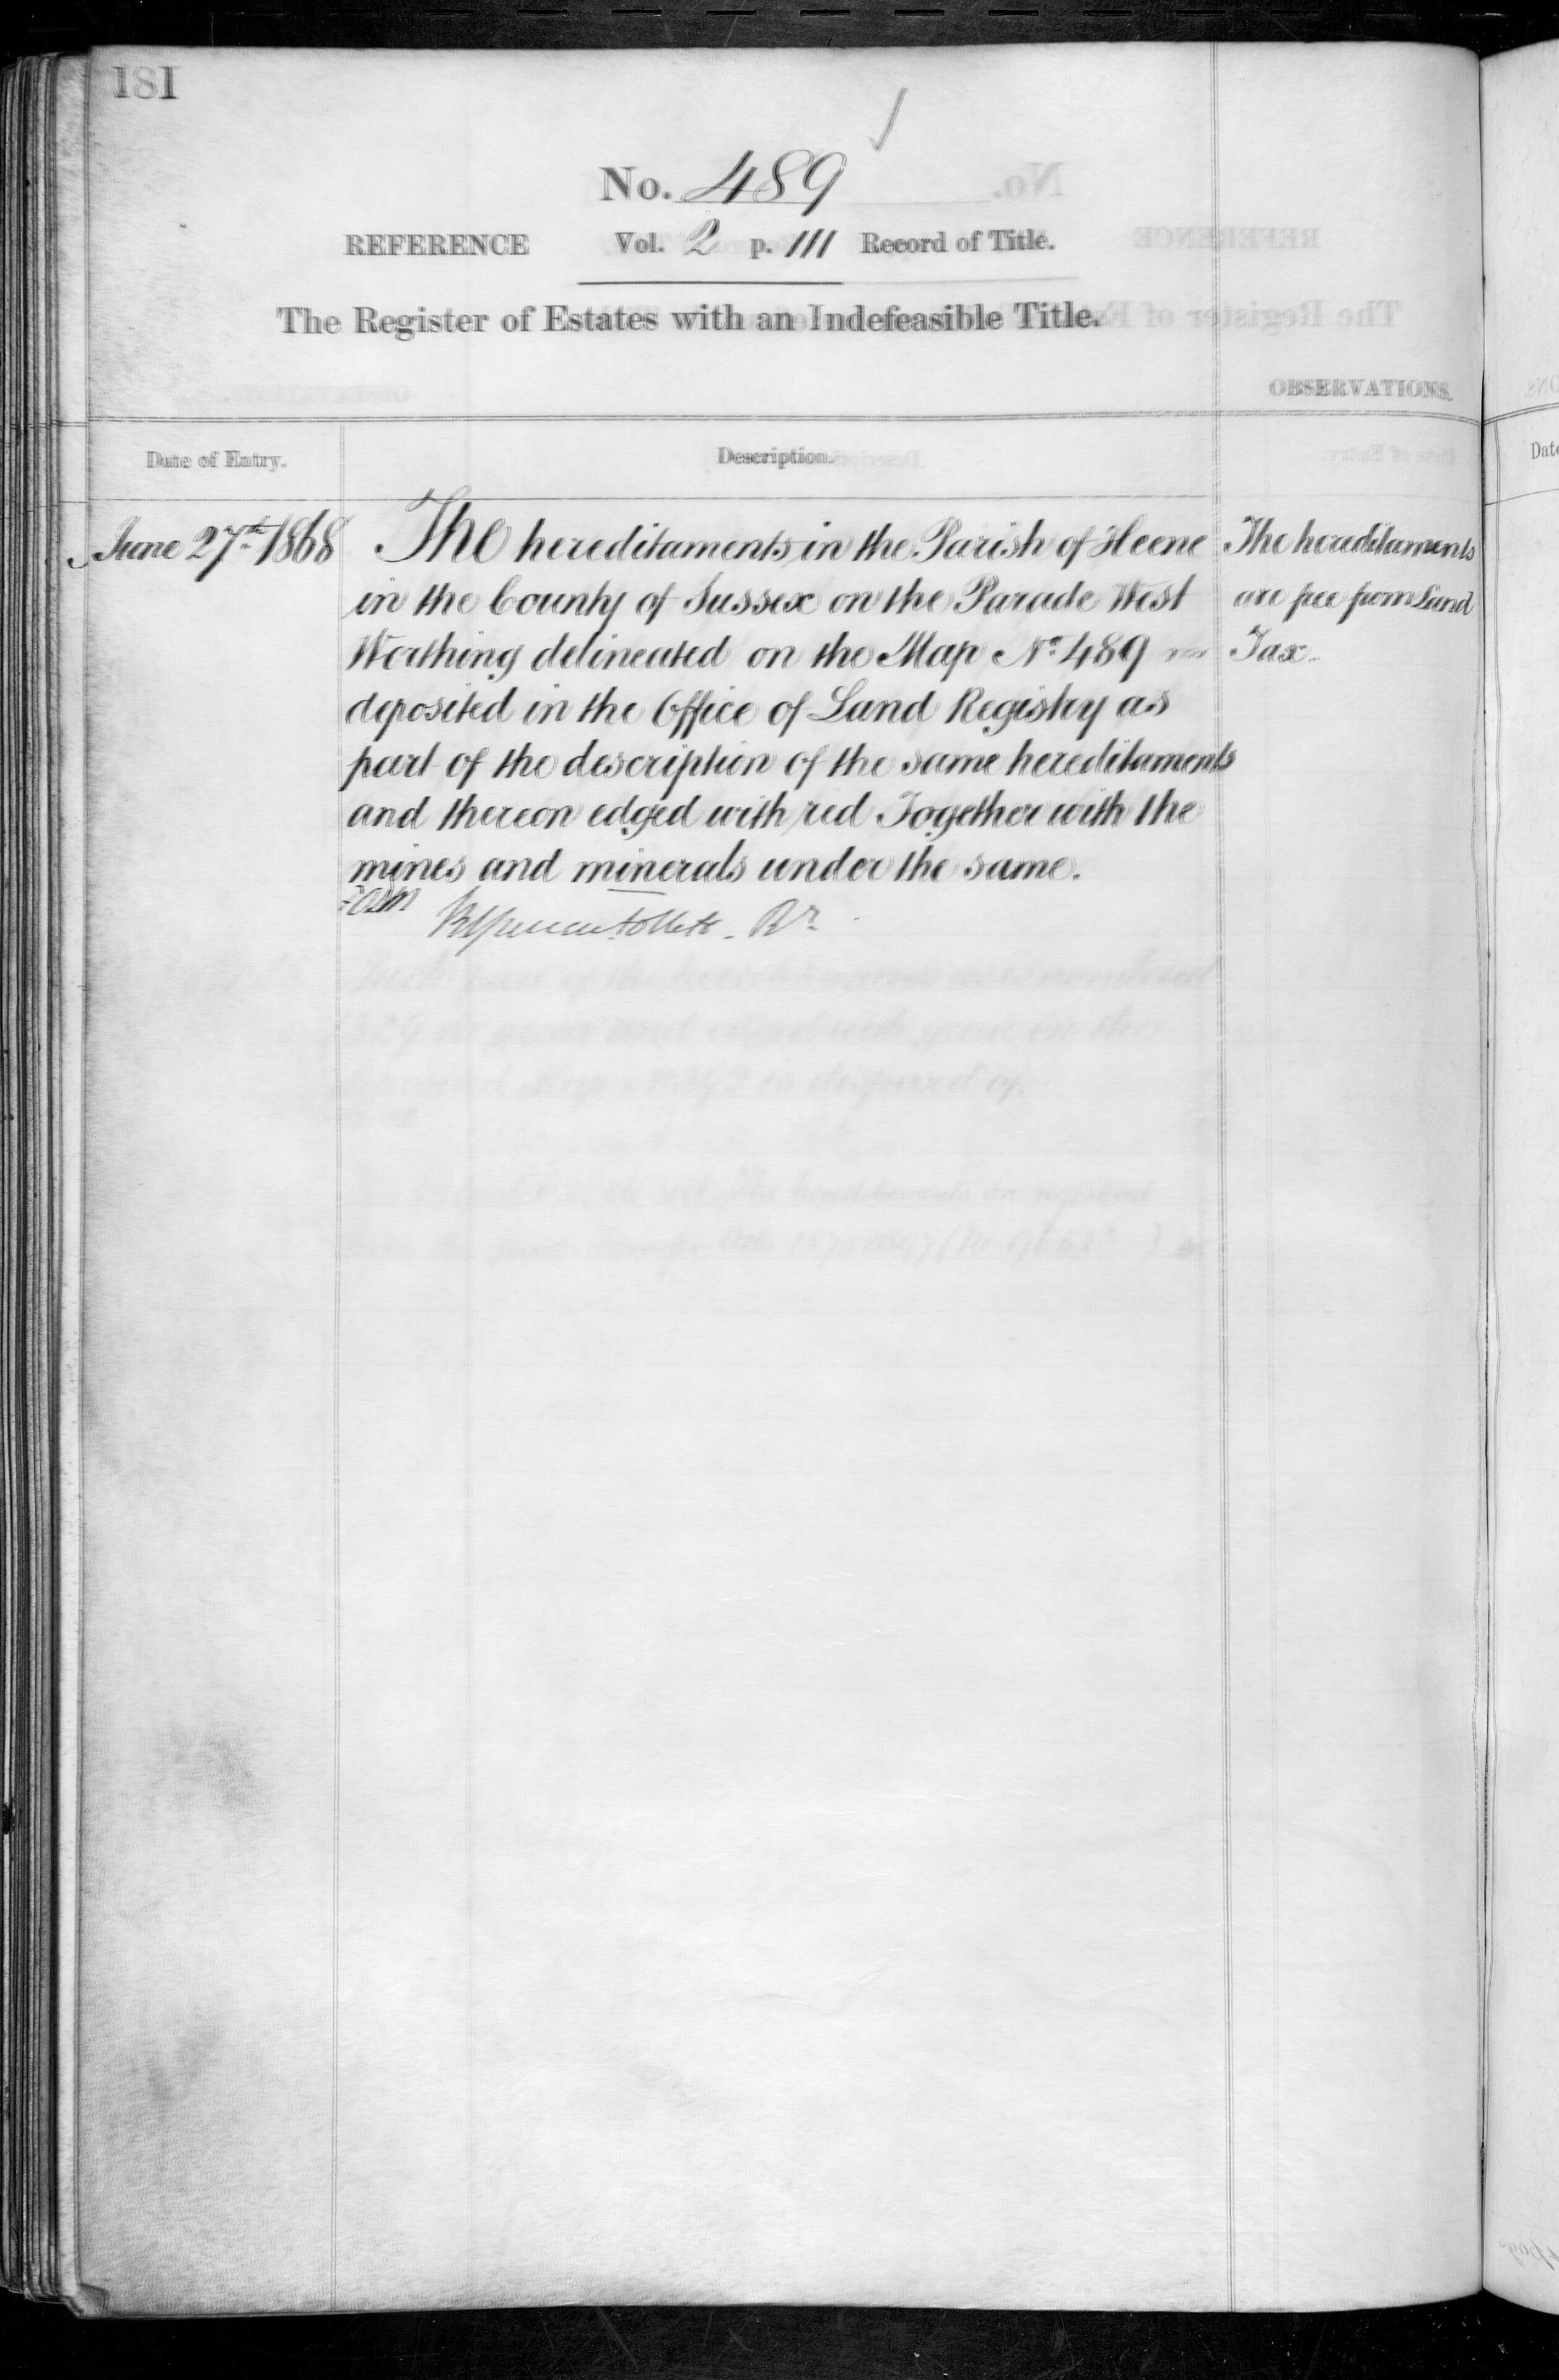 181
No. 489
REFERENCE Vol. 2 p. 111 Record of Title.
The Register of Estates with an Indefeasible Title.
OBSERVATIONS.
Date of Entry.
Description.
June 27th 1868
The hereditaments in the Parish of Heene
in the County of Sussex on the Parade West
Worthing delineated on the Map No. 489
deposited in the Office of Land Registry as
part of the description of the same hereditaments
and thereon edged with red Together with the
mines and minerals under the same.
Rr.
The hereditaments
are free from Land
Tax.
Date